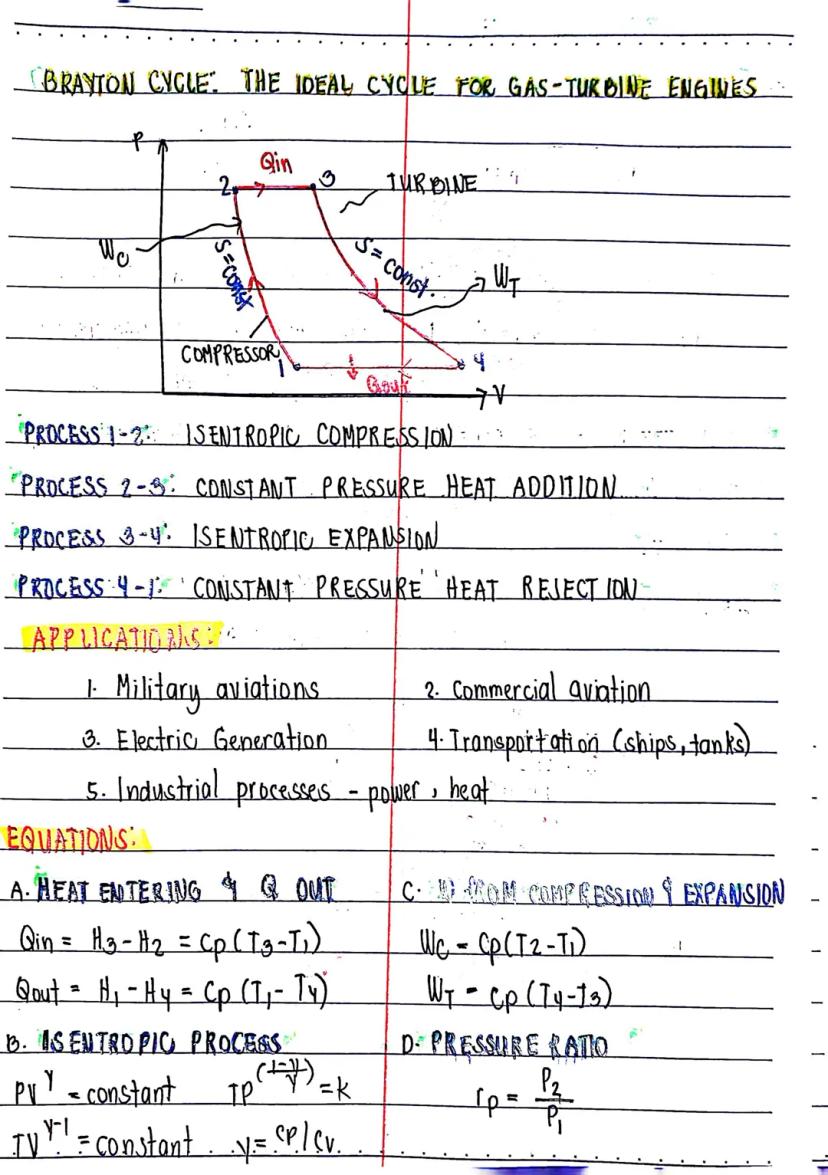 BRAYTON CYCLE: THE IDEAL CYCLE FOR GAS-TURBINE ENGINES
P
Qin
2
3
TURBINE
Wc
S=const
S=const.
WT
COMPRESSOR
1
4
Qout
V
PROCESS 1-2: ISENTROPIC COMPRESSION
PROCESS 2-3: CONSTANT PRESSURE HEAT ADDITION
PROCESS 3-4: ISENTROPIC EXPANSION
PROCESS 4-1: CONSTANT PRESSURE HEAT REJECTION
APPLICATIONS:
1. Military aviations 2. Commercial aviation
3. Electric Generation 4. Transportation (ships, tanks)
5. Industrial processes - power, heat
EQUATIONS:
A. HEAT ENTERING & Q OUT
Qin = H3-H2 = Cp(T3-T1)
Qout = H1-H4 = Cp(T1-T4)
B. ISENTROPIC PROCESS
PV^γ = constant TP^((1-γ)/γ) = K
TV^(γ-1) = constant γ = Cp/Cv.
C. W FROM COMPRESSION & EXPANSION
Wc = Cp(T2-T1)
WT = Cp(T4-T3)
D. PRESSURE RATIO
rp = P2/P1